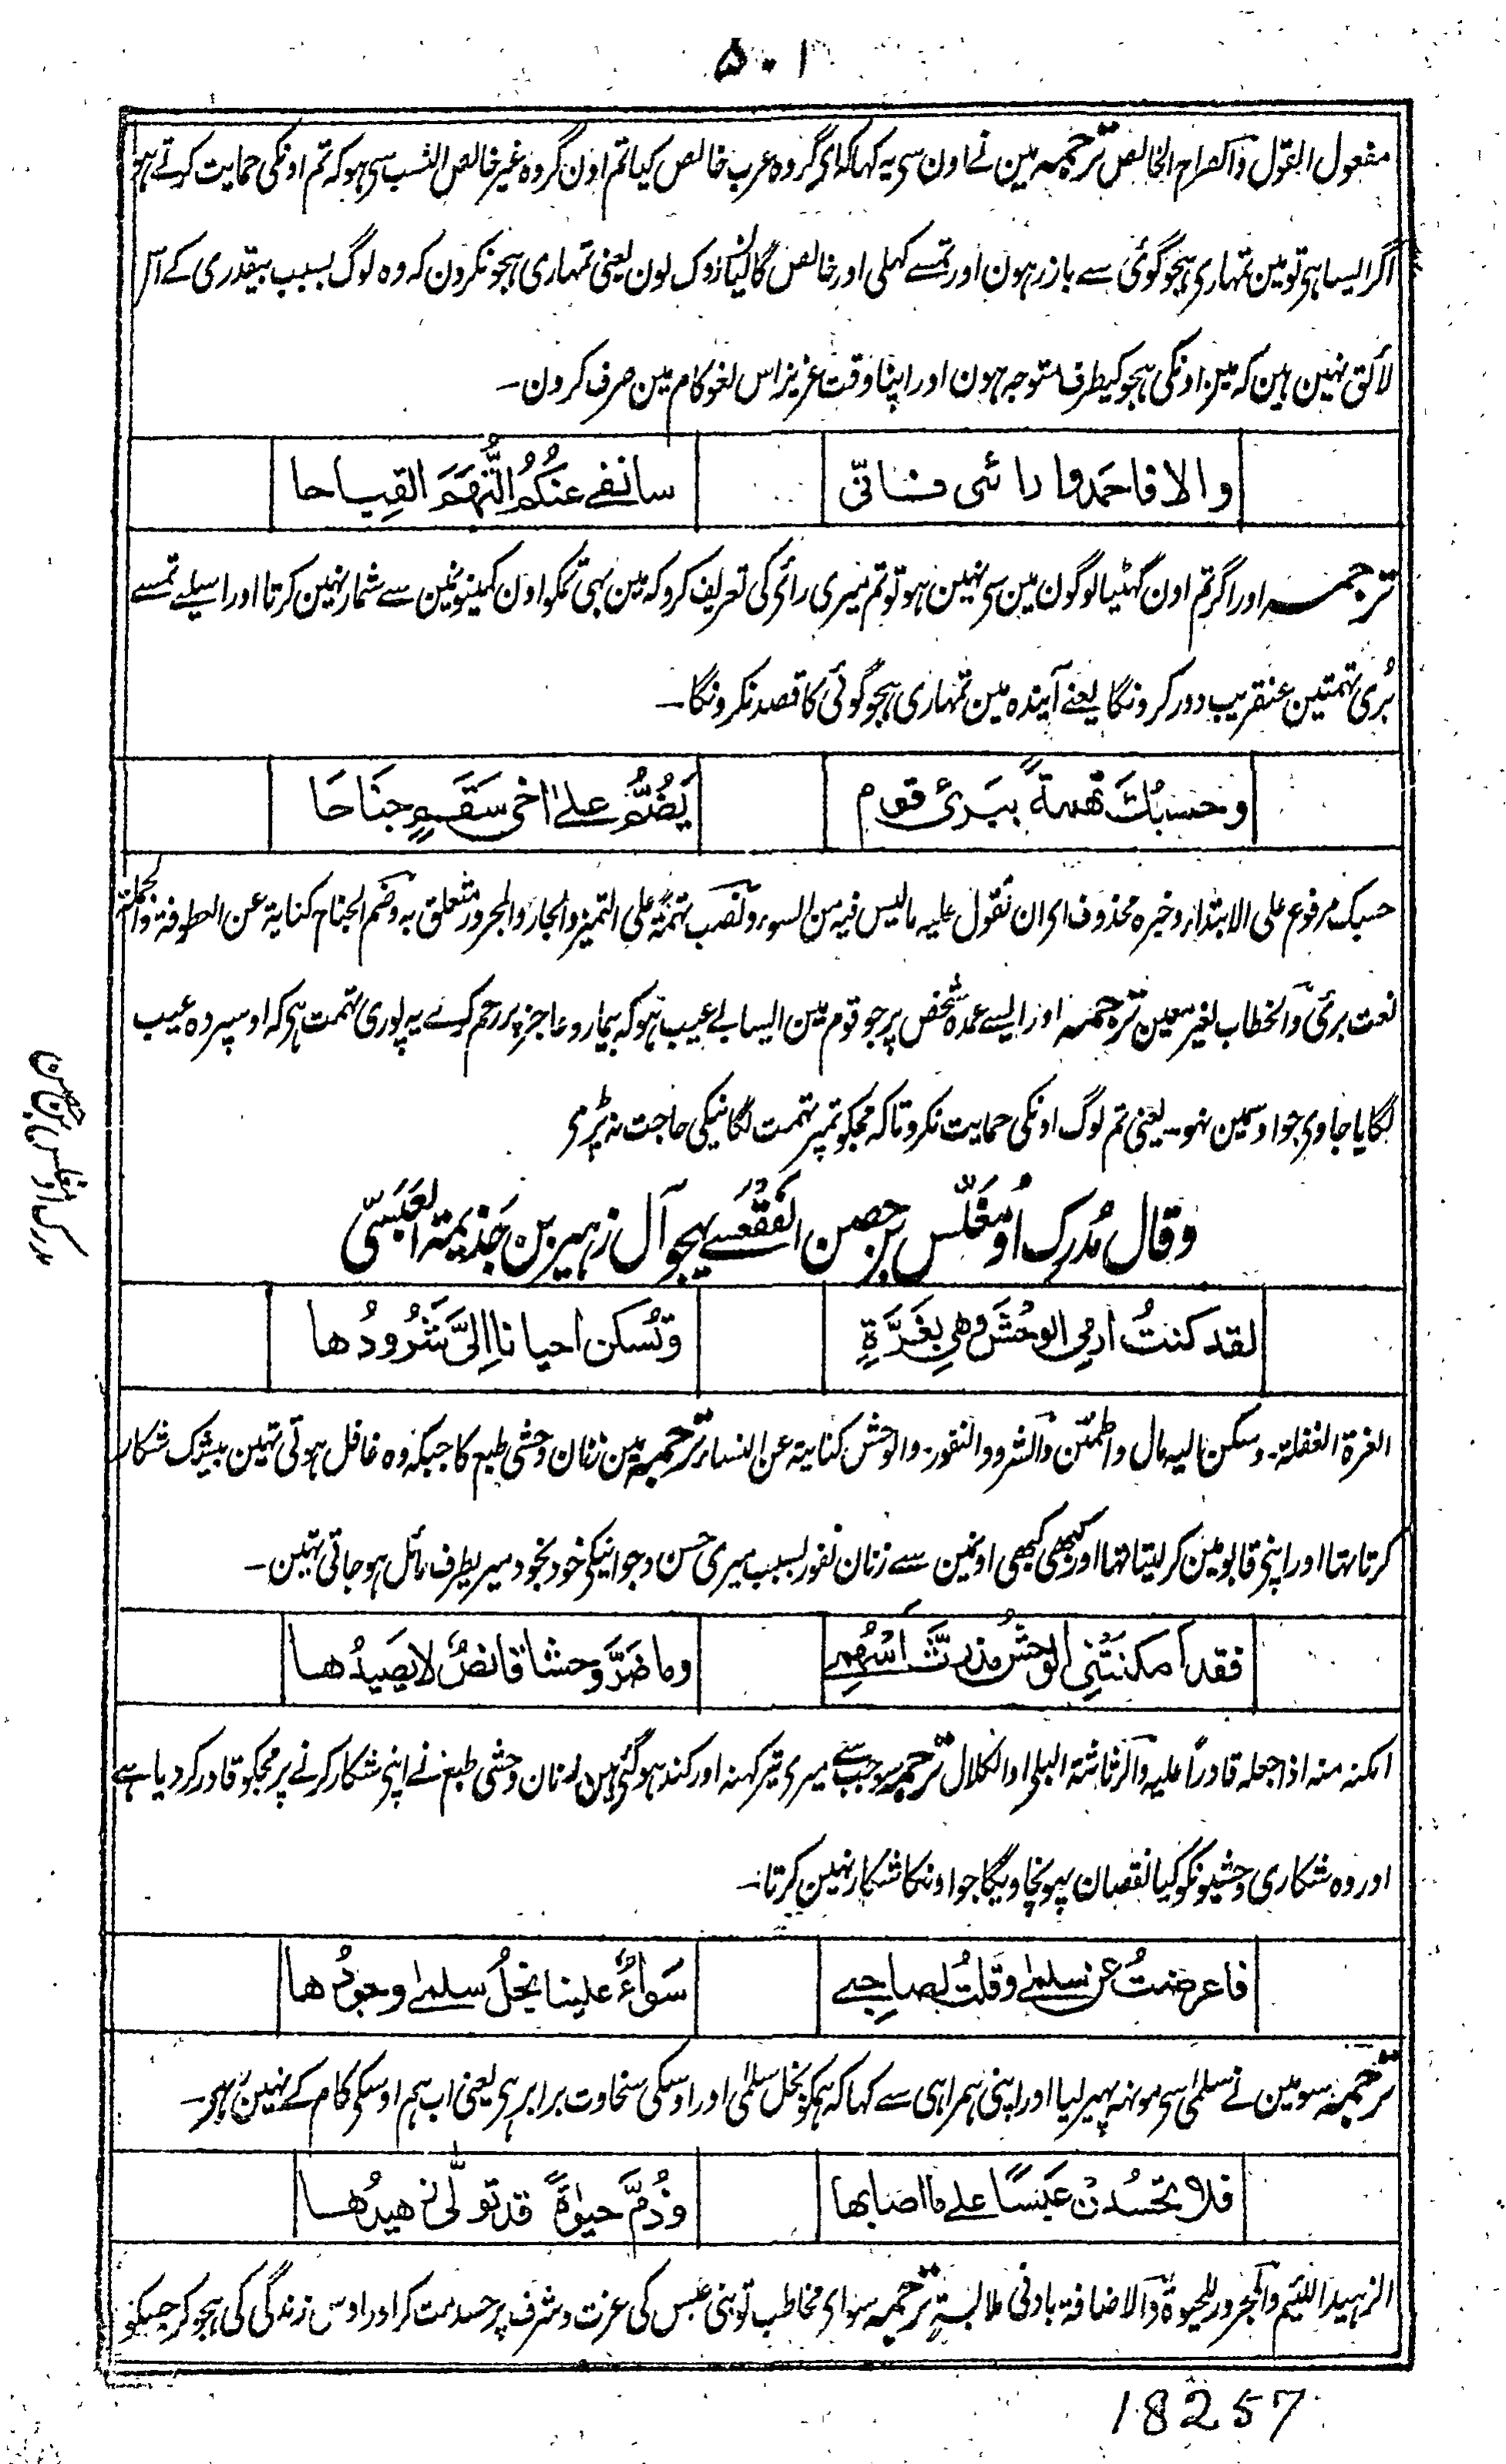 ۵۰۱
مفعول القول والصراح الخالص ترجمہ مین نے اون سی یہ کہا کہ ای گروہ عرب خالص کیا تم اون گروہ غیر خالص النسب سی ہو کہ تم اونکی حمایت کرتے ہو
اگر ایسا ہی تو مین تمہاری ہجو گوئی سے باز رہون اور تمسے کہلی اور خالص گالیان روک لون یعنی تمہاری ہجو نکرون کہ وہ لوگ بسبب بیقدری کے اس
لائق نہین ہین کہ مین اونکی ہجو کیطرف متوجہ ہون اور اپنا وقت عزیز اس لغو کام مین صرف کرون۔
والا فاحمدوا رائی فانّی سانفے عنکُمُ التُّهَمَ القِباحا
ترجمہ اور اگر تم اون گہٹیا لوگون مین سی نہین ہو تو تم میری رائے کی تعریف کرو کہ مین بہی تمکو اون کمینونمین سے شمار نہین کرتا اور اسیلے تمسے
بُری تہمتین عنقریب دور کرونگا یعنے آیندہ مین تمہاری ہجو گوئی کا قصد نکرونگا۔
وحسبُكَ تهمةً ببَرئ قوم يَضُمُّ علےٰ اخی سَقَمٍ جَنَاحَا
حسبک مرفوع علی الابتداء وخبرہ محذوف ای ان تقول علیہ مالیس فیہ من السوء ونصب تہمۃً علی التمیز والجار والمجرور متعلق بہ وضم الجناح کنایۃ عن العطوفۃ والجملۃ
نعت برئ والخطاب لغیر معین ترجمہ اور ایسے عمدہ شخص پر جو قوم مین ایسا بے عیب ہو کہ بیمار و عاجز پر رحم کرے یہ پوری تہمت ہی کہ اوسپر وہ عیب
لگایا جاوی جو اوسمین نہو۔ یعنی تم لوگ اونکی حمایت نکرو تاکہ مجکو تمپر تہمت لگانیکی حاجت نہ پڑی
وقال مُدرِك اَو مُغَلِّس بن حصن الفَقْعَسے یہجو آل زهیر بن جَذِیمۃ العَبَسیّ
مدرک او مغلس بن حصن
لقد کنتُ ارمِی الوحشَ وهِي بِغَرَّةٍ وتَسکن احیانا اِلیَّ شَرُودُها
الغرۃ الغفلۃ۔ وسکن الیہ مال واطمئن والشرود النفور۔ والوحش کنایۃ عن النساء ترجمہ مین زنان وحشی طبع کا جبکہ وہ غافل ہوتی تہین بیشک شکار
کرتا تہا اور اپنی قابو مین کر لیتا تہا اور کبھی کبھی اونمین سے زنان نفور بسبب میری حسن وجوانیکی خودبخود میریطرف مائل ہو جاتی تہین۔
فقد اَمکنَتْنِي الوحشُ مذ رثَّ اَسْهُمِے وما ضَرَّ وحشا قانصٌ لا یَصِیدُها
امکنہ منہ اذا جعلہ قادراً علیہ والرثاثۃ البلی او الکلال ترجمہ جب سے میری تیر کہنہ اور کند ہوگئی ہین زنان وحشی طبع نے اپنی شکار کرنے پر مجکو قادر کر دیا ہے
اور وہ شکاری وحشیونکو کیا نقصان پہونچاویگا جو اونکا شکار نہین کرتا۔
فاعرضتُ عن سلمےٰ وقلتُ لصاحِبے سَواءٌ علینا بخلُ سلمےٰ وجودُها
ترجمہ سو مین نے سلمیٰ سی مونہہ پہیر لیا اور اپنی ہمراہی سے کہا کہ ہمکو بخل سلمیٰ اور اوسکی سخاوت برابر ہی یعنی اب ہم اوسکی کام کے نہین رہے۔
فلا تحسُدنْ عَبْسًا علے ما اصابها وذُمَّ حیٰوۃً قد تولّٰی زهیدُها
الزہید اللئیم والمجرور للحیوۃ والاضافۃ بادنی ملابسۃٍ ترجمہ سو ای مخاطب تو بنی عبس کی عزت و شرف پر حسد مت کر اور اوس زندگی کی ہجو کر جسکو
18257